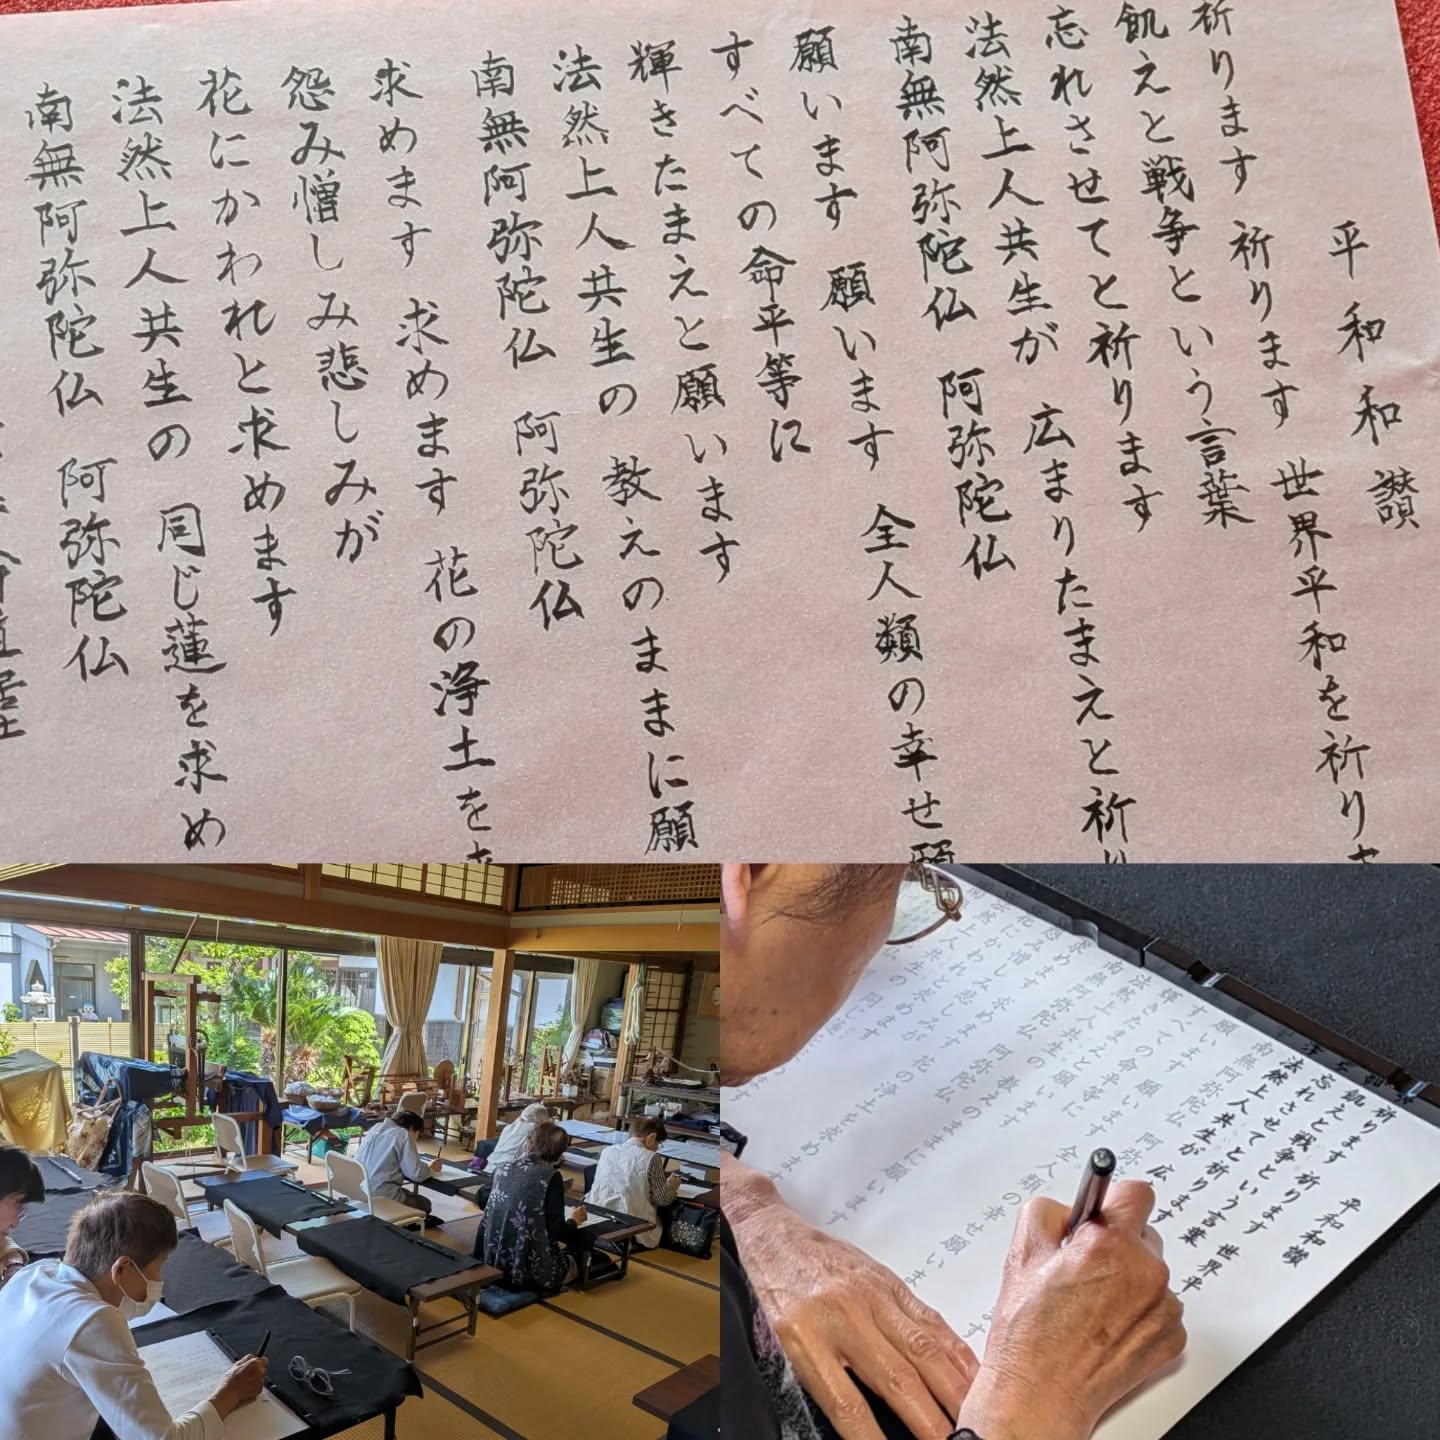 平和和讃
祈ります 祈ります 世界平和を祈りま
飢えと戦争という言葉
忘れさせてと祈ります
法然上人共生が 広まりたまえと祈り
南無阿弥陀仏 阿弥陀仏
願います 願います 全人類の幸せ願
すべての命平等に
輝きたまえと願います
法然上人共生の 教えのままに願
南無阿弥陀仏 阿弥陀仏
求めます 求めます 花の浄土を求
怨み憎しみ悲しみが
花にかわれと求めます
法然上人共生の 同じ蓮を求め
南無阿弥陀仏 阿弥陀仏
平和和讃
祈ります 祈ります 世界平
飢えと戦争という言葉
忘れさせてと祈ります
法然上人共生が 広
南無阿弥陀仏 阿弥陀
願います 願います 全人類の幸せ願いま
すべての命平等に
輝きたまえと願います
法然上人共生の 教えのままに願います
南無阿弥陀仏 阿弥陀仏
求めます 求めます 花の浄土を求めます
怨み憎しみ悲しみが
花にかわれと求めます
法然上人共生の 同じ